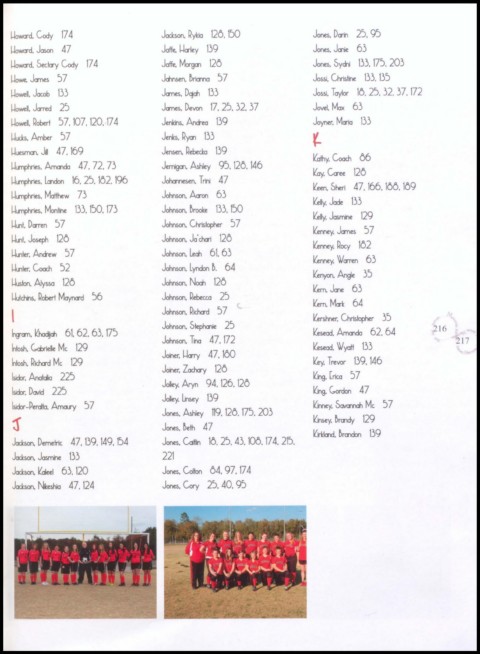 Howard, Cody 174
Howard, Jason 47
Howard, Sectary Cody 174
Howe, James 57
Howell, Jacob 133
Howell, Jarred 25
Howell, Robert 57, 107, 120, 174
Hucks, Amber 57
Huesman, Jill 47, 169
Humphries, Amanda 47, 72, 73
Humphries, Landon 16, 25, 182, 196
Humphries, Matthew 73
Humphries, Montine 133, 150, 173
Hunt, Darren 57
Hunt, Joseph 128
Hunter, Andrew 57
Hunter, Coach 52
Huston, Alyssa 128
Hutchins, Robert Maynard 56
I
Ingram, Khadijah 61, 62, 63, 175
Intosh, Gabrielle Mc 129
Intosh, Richard Mc 129
Isidor, Anatalia 225
Isidor, David 225
Isidor-Peralta, Amaury 57
J
Jackson, Demetric 47, 139, 149, 154
Jackson, Jasmine 133
Jackson, Kaleel 63, 120
Jackson, Nikeshia 47, 124
Jackson, Rykia 128, 150
Jaffe, Harley 139
Jaffe, Morgan 128
Jahnsen, Brianna 57
James, Dajah 133
James, Devon 17, 25, 32, 37
Jenkins, Andrea 139
Jenks, Ryan 133
Jensen, Rebecka 139
Jernigan, Ashley 95, 128, 146
Johannesen, Trini 47
Johnson, Aaron 63
Johnson, Brooke 133, 150
Johnson, Christopher 57
Johnson, Ja'chari 128
Johnson, Leah 61, 63
Johnson, Lyndon B. 64
Johnson, Noah 128
Johnson, Rebecca 25
Johnson, Richard 57
Johnson, Stephanie 25
Johnson, Tina 47, 172
Joiner, Harry 47, 180
Joiner, Zachary 128
Jolley, Aryn 94, 126, 128
Jolley, Linsey 139
Jones, Ashley 119, 128, 175, 203
Jones, Beth 47
Jones, Caitlin 18, 25, 43, 108, 174, 215,
221
Jones, Colton 84, 97, 174
Jones, Cory 25, 40, 95
Jones, Darin 25, 95
Jones, Janie 63
Jones, Sydni 133, 175, 203
Jossi, Christine 133, 135
Jossi, Taylor 18, 25, 32, 37, 172
Jovel, Max 63
Joyner, Maria 133
K
Kathy, Coach 86
Kay, Caree 128
Keen, Sheri 47, 166, 188, 189
Kelly, Jade 133
Kelly, Jasmine 129
Kenney, James 57
Kenney, Rocy 182
Kenney, Warren 63
Kenyon, Angle 35
Kern, Jane 63
Kern, Mark 64
Kershner, Christopher 35
Kesead, Amanda 62, 64
Kesead, Wyatt 133
Key, Trevor 139, 146
King, Erica 57
King, Gordon 47
Kinney, Savannah Mc 57
Kinsey, Brandy 129
Kirkland, Brandon 139
216
217